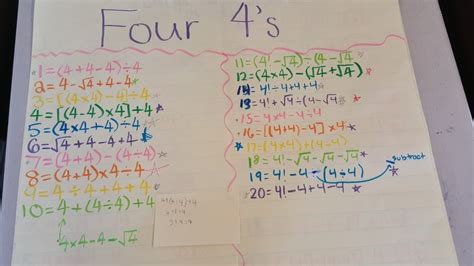 Four 4's
1=(4+4-4)÷4
2=4-√4+4-4
3=[(4×4)-4]÷4
4=[(4-4)×4]+4
5=(4×4+4)÷4
6=√4+4-4+4
7=(4+4)-(4÷4)
8=(4+4)×4÷4
9=4÷4+4+4
10=4+(4÷4)+4
4×4-4-√4
11=(4!-√4)÷(4-√4)
12=(4×4)-(√4+√4)
=4!÷4+4+4
13=4!+√4÷(4-√4
15=4×4-4÷4
16=[(4+4)-4]×4
17=(4×4)+(4÷4)
18=4!-√4-√4-√4
19=4!-4-(4÷4)
subtract
20=4!-4+4-4